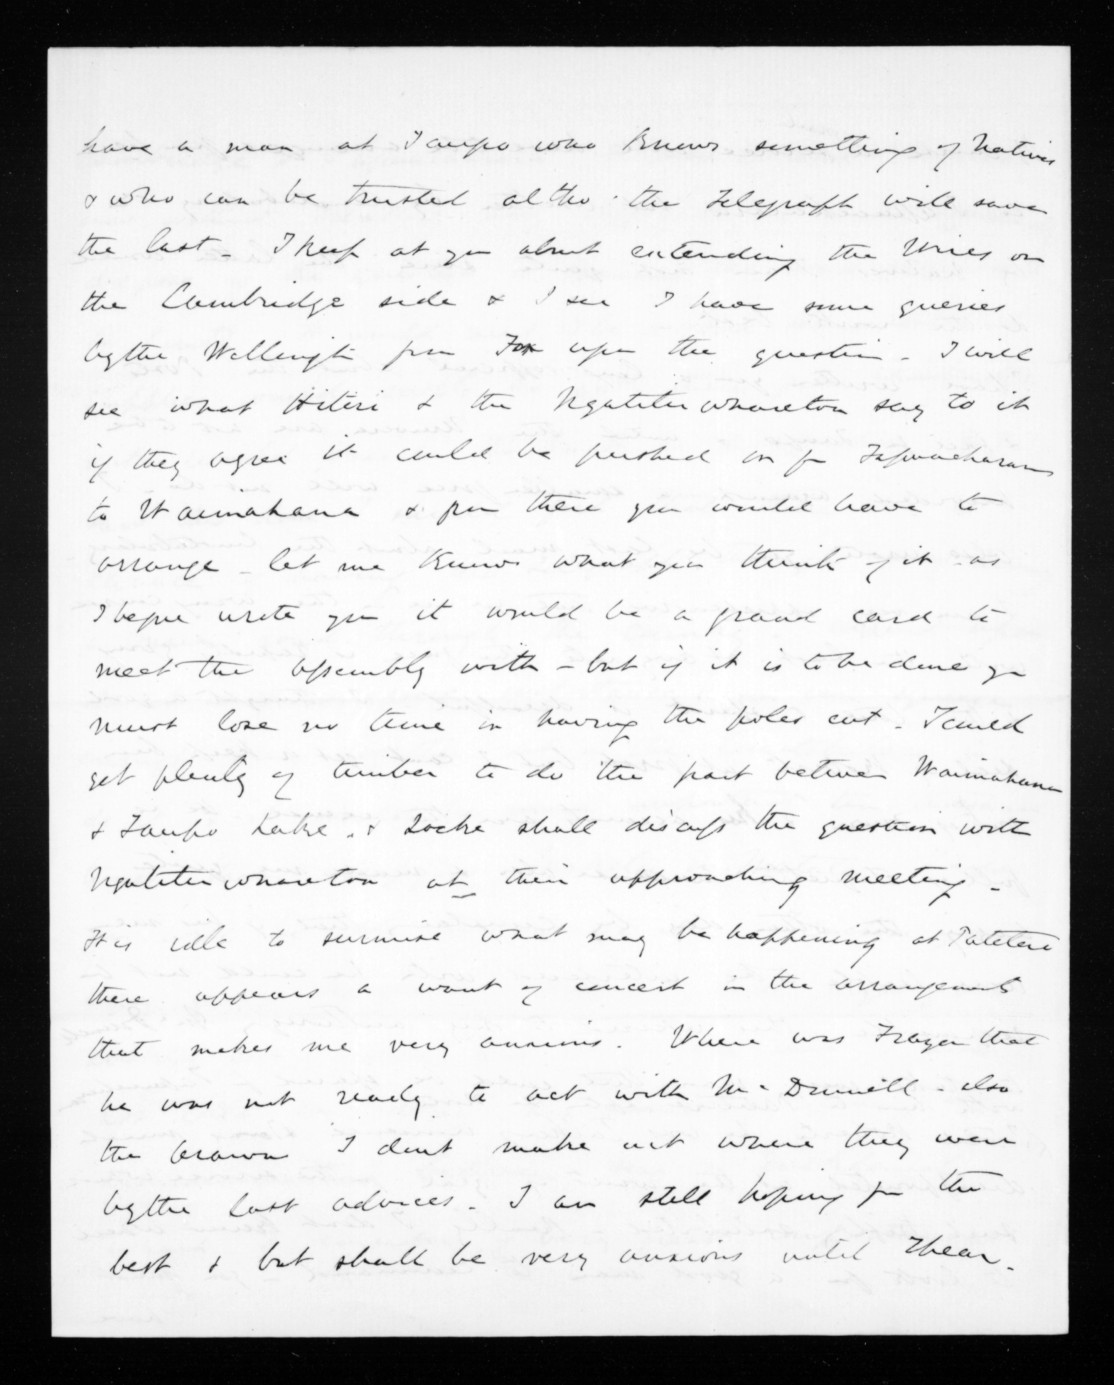 have a man at Taupo who knows something of Natives
& who can be trusted altho' the Telegraph will save
the last - I keep at you about extending the Wires on
the Cambridge side & I see I have some queries
by the Wellington from Fox upon the question - I will
see what Hitiri & the Ngatitewharetoa say to it
if they agree it could be pushed on fr Tapuaeharuru
to Waimahana & from there you would have to
arrange - let me know what you think of it - as
I before wrote you it would be a grand card to
meet the Assembly with - but if it is to be done you
must lose no time in having the poles cut - I could
get plenty of timber to do the part between Waimahana
& Taupo Lake . & Locke shall discuss the question with
Ngatitewharetoa at their approaching meeting -
It is idle to surmise what may be happening at Patetere
there appears a want of concert in the arrangements
that makes me very anxious. Where was Frazer that
he was not ready to act with McDonnell - also
the Arawa I dont make out where they were
by the last advices - I am still hoping for the
best & but shall be very anxious until I hear.